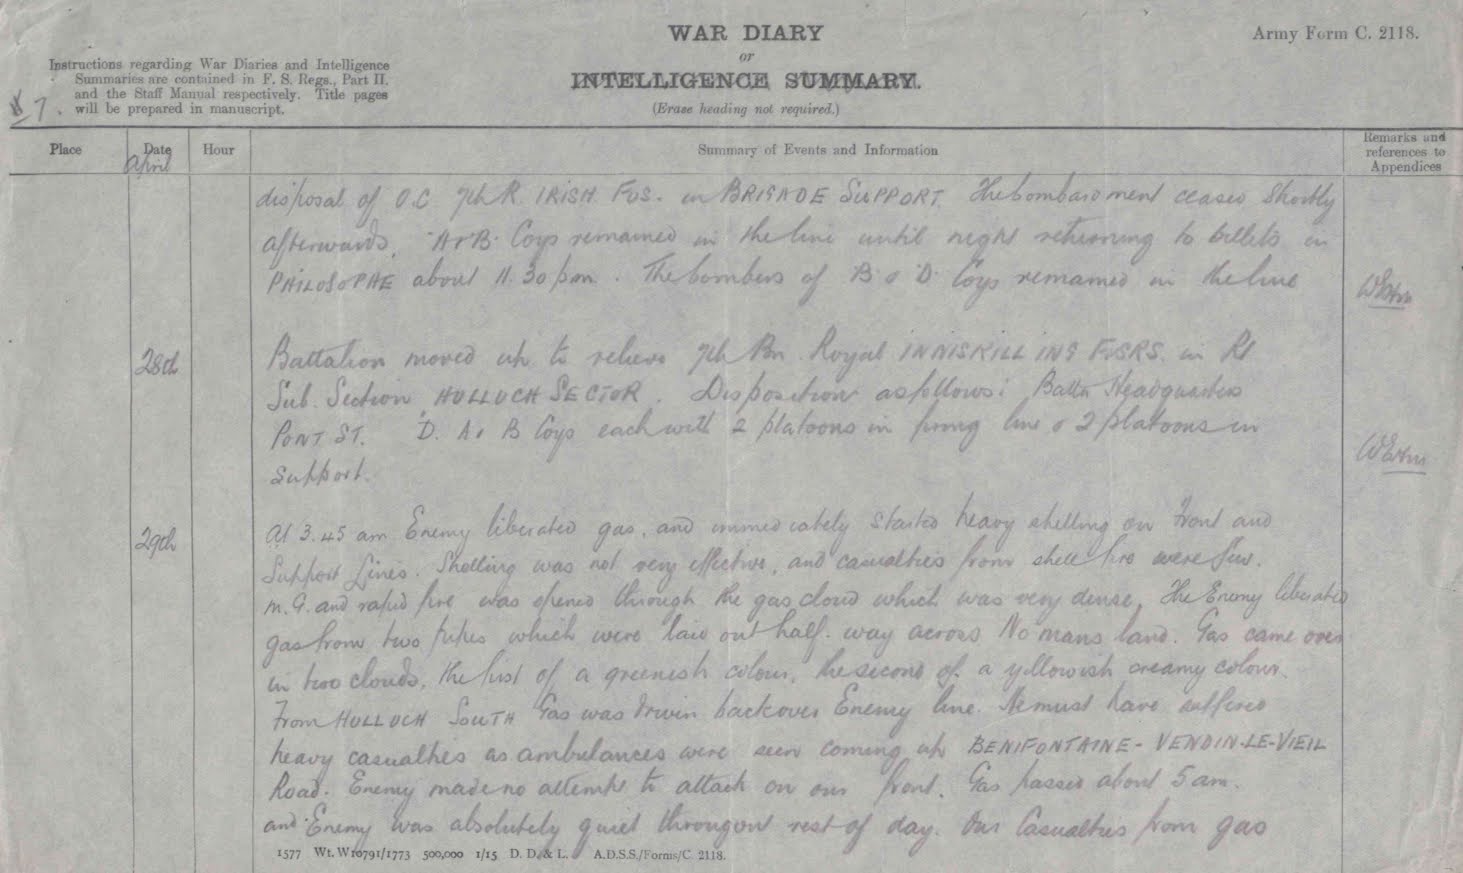 WAR DIARY
or
INTELLIGENCE SUMMARY.
(Erase heading not required.)
Army Form C. 2118.
Instructions regarding War Diaries and Intelligence
Summaries are contained in F. S. Regs., Part II.
and the Staff Manual respectively. Title pages
will be prepared in manuscript.
7.
Place
Date
Hour
Summary of Events and Information
Remarks and
references to
Appendices
April
disposal of O.C 7th R. IRISH FUS. in BRIGADE SUPPORT. The bombardment ceased shortly
afterwards. 'A & B' Coys remained in the line until night returning to billets in
PHILOSOPHE about 11.30 pm. The bombers of 'B & D' Coys remained in the line
28th
Battalion moved up to relieve 7th Bn. Royal INNISKILLING FUSRS. in Rt
Sub. Section HULLUCH SECTOR. Disposition as follows: Battn Headquarters
PONT ST. D. A & B Coys each with 2 platoons in firing line & 2 platoons in
Support.
29th
At 3.45 am Enemy liberated gas, and immediately started heavy shelling on Front and
Support Lines. Shelling was not very effective, and casualties from shell fire were few.
M.G. and rapid fire was opened through the gas cloud which was very dense. The Enemy liberated
gas from two pipes which were laid out half-way across No mans land. Gas came over
in two clouds, the first of a greenish colour, the second of a yellowish creamy colour.
From HULLUCH SOUTH Gas was driven back over Enemy line. He must have suffered
heavy casualties as ambulances were seen coming up BENIFONTAINE - VENDIN-LE-VIEIL
Road. Enemy made no attempt to attack on our front. Gas passed about 5 am.
and Enemy was absolutely quiet througout rest of day. Our Casualties from gas
1577 Wt. W10791/1773 500,000 1/15 D. D. & L. A.D.S.S./Forms/C. 2118.